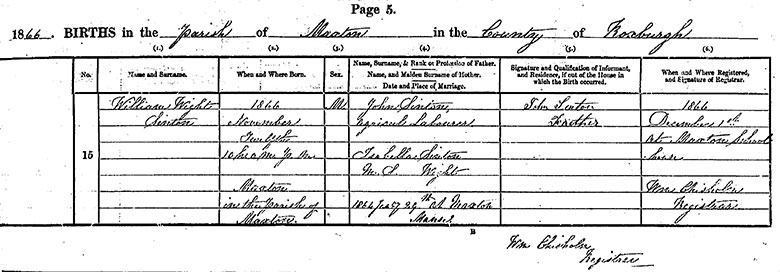 Page 5.
1866. BIRTHS in the Parish of Maxton in the County of Roxburgh
(1.) (2.) (3.) (4.) (5.) (6.)
No. Name and Surname. When and Where Born. Sex. Name, Surname, & Rank or Profession of Father. Name, and Maiden Surname of Mother. Date and Place of Marriage. Signature and Qualification of Informant, and Residence, if out of the House in which the Birth occurred. When and Where Registered, and Signature of Registrar.
William Wight 1866 M John Sinton John Sinton 1866
Sinton November Agricul Labourer Father December 1st
Twelfth At Maxton School
15 10h M. P.M. Isabella Sinton house
M.S. Wight
Maxton Wm Chisholm
in the Parish of 1864 29th At Maxton Registrar
Maxton Manse
B
Wm Chisholm
Registrar